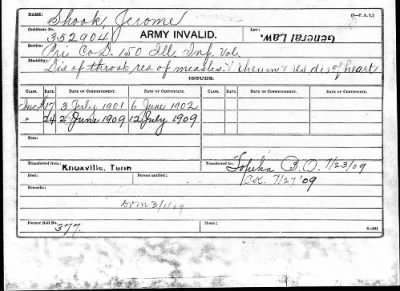 NAME: Shook, Jerome (3-P. A. I.)
Certificate No. 352904 ARMY INVALID. Law: General Law.
Service: Pri Co D. 150 Ill. Inf. Vol.
Disability: Dis of throat res of measles & rheum & res dis of heart
ISSUES.
CLASS. RATE. DATE OF COMMENCEMENT. DATE OF CERTIFICATE. CLASS. RATE. DATE OF COMMENCEMENT. DATE OF CERTIFICATE.
17 3 July 1901 6 June 1902
" 24 2 June 1909 12 July 1909
Transferred from Knoxville, Tenn Transferred to Topeka B.O. 7/23/09
Died: 7/27/09
Remarks:
3/1/09
Former Roll No. 377. Home: